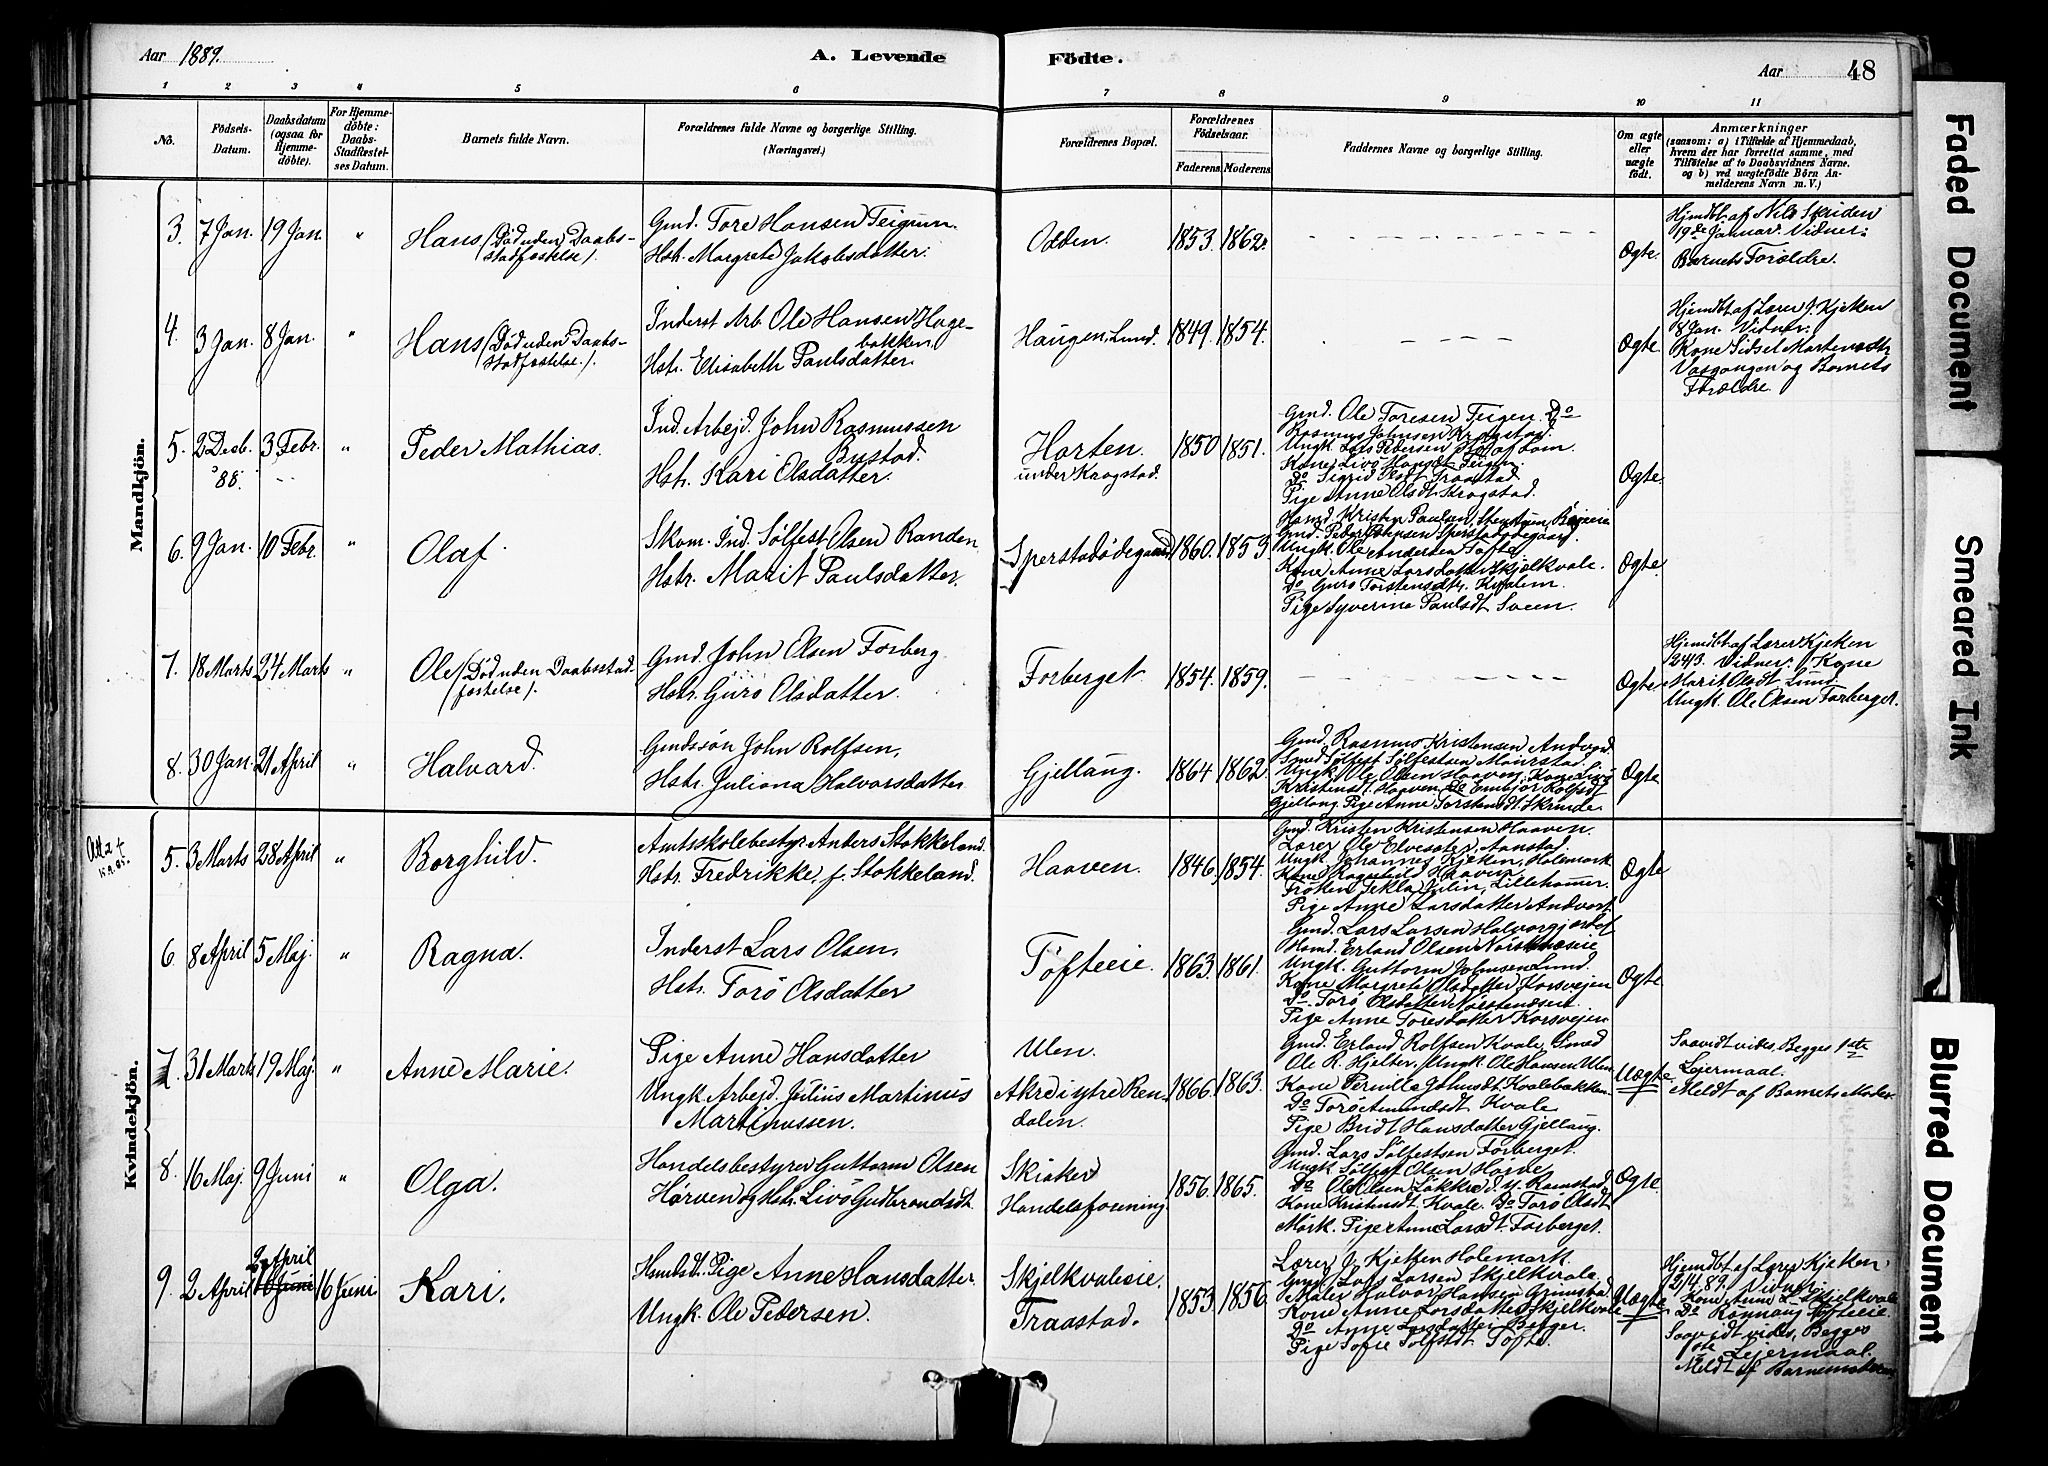 Aar 1889.
A. Levende Födte.
Aar 48
1 2 3 4 5 6 7 8 9 10 11
No.
Födsels-Datum.
Daabsdatum (ogsaa for Hjemmedöbte).
For Hjemmedöbte: Daabs-Stadfæstelses Datum.
Barnets fulde Navn.
Forældrenes fulde Navne og borgerlige Stilling. (Næringsvei.)
Forældrenes Bopæl.
Forældrenes Födselsaar.
Faderens Moderens
Faddernes Navne og borgerlige Stilling.
Om ægte eller uægte födt.
Anmærkninger
(saasom: a) i Tilfælde af Hjemmedaab,
hvem der har forrettet samme, med
Tilföielse af to Daabsvidners Navne,
og b) ved uægtefödte Börn An-
melderens Navn m. V.)
Mandkjön.
3. 7 Jan. 19 Jan. " Hans (Död uden Daabs-
stadfæstelse).
Gmd. Tore Hansen Teigum.
Hstr. Margrete Jakobsdatter.
Odden. 1853. 1862.
Ægte.
Hjemdbt. af Nils Skriden
19de Januar. Vidner:
Barnets Forældre.
4. 3 Jan. 8 Jan. " Hans (Död uden Daabs-
stadfæstelse).
Inderst Arb. Ole Hansen Hage-
bakken
Hstr. Elisabeth Paulsdatter.
Haugen, Lund. 1849. 1854.
Ægte.
Hjemdbt af Lærer J. Kjeken
8 Jan. Vidner:
Kone Sidsel Mortensdtr
Vasgangen og Barnets
Forældre.
5. 2 Decb. 3 Febr. " Peder Mathias.
'88.
Ind. Arbejd. John Rasmussen
Bustad.
Hstr. Kari Olsdatter.
Horten.
under Kragstad.
1850 1851.
Gmd. Ole Toresen Teigen. Do
Rasmus Johnsen Kragstad.
Ungk. Lars Pedersen
Kone Livö Hansdt Teigen.
Do Sigrid Olsdt Traastad.
Pige Anne Olsdt. Kragstad.
Ægte.
6. 9 Jan. 10 Febr. " Olaf.
Skom. Ind. Sölfest Olsen Randen
Hstr. Marit Paulsdatter.
Sperstadödegaard 1860. 1853
Ungk. Ole Andersen Tofte
Kone Anne Larsdatter Skjelkvale.
Do Guro Torstensdtr. Kvalem.
Pige Syverine Paulsdt Sveen.
Ægte.
7. 18 Marts 24 Marts " Ole (Död uden Daabsstad-
fæstelse).
Gmd. John Olsen Forberg
Hstr. Guro Olsdatter.
Forberget 1854. 1859.
Ægte.
Hjemdbt af Lærer Kjeken
24/3. Vidner: Kone
Marit Olsdt Lund.
Ungk. Ole Olsen Forberget.
8. 30 Jan. 21 April " Halvard.
Gmdssön John Rolfsen,
Hstr. Juliana Halvorsdatter.
Gjellaug. 1864 1862.
Gmd. Rasmus Kristensen Andvord
Smed Sölfest Sölfestsen
Ungk. Ole Olsen Haaven, Kone Livö
Kristensdt. Haaven, Do Embjör Rolfsdt
Gjellaug. Pige Anne Torstensdt. Skrinde.
Ægte
Kvindekjön.
5. 3 Marts 28 April " Borghild.
Amtsskolebestyr Anders Stokkeland.
Hstr. Fredrikke, f. Stokkeland.
Haaven. 1846. 1854.
Gmd. Kristen Kristensen Haaven.
Lærer Ole Elvesæter, Aanstad.
Ungk. Johannes Kjeken, Holemark
Kone Ragnhild Haaven
Fröken Tekla Julin, Lillehamer.
Pige Anne Larsdatter Andvort
Ægte
6. 8 April 5 Maj. " Ragna.
Inderst Lars Olsen.
Hstr. Torö Olsdatter
Töfteeie. 1863. 1861.
Gmd. Lars Larsen Halvorgjordet
Hsmd. Erland Olsen
Ungk. Guttorm Johnsen Lund.
Kone Margrete Olsdatter Korsvejen
Do Torö Olsdatter
Pige Anne Toresdatter Korsvejen
Ægte
7. 31 Marts 19 Maj. " Anne Marie.
Pige Anne Hansdatter
Ungk. Arbejd. Julius Martinus
Martinussen.
Ulen.
Akre i ytre Ren-
dalen.
1866. 1863.
Gmd. Erland Rolfsen Kvale. Smed
Ole R. Hjelter, Ungk. Ole Hansen Ulen
Kone Pernille Johnsdt. Kvalebakken
Do Torö Amundsdt. Kvale
Pige Bridt Hansdatter Gjellaug.
Uægte.
Saavidt vides, Begges 1ste
Lejermaal.
Meldt af Barnets Moder
8. 16 Maj. 9 Juni " Olga.
Handelsbestyrer Guttorm Olsen
Hörven og Hstr. Livö Gudbrandsdt.
Skiaker
Handelsforening
1856. 1865.
Gmd. Lars Sölfestsen Forberget.
Ungk. Sölfest Olsen Harve
Do Ole Olsen Lökkre d. y. Ramstad
Kone Kristensdt. Kvale. Do Torö Olsdt
Mörk. Pige Anne Larsdt Forberget.
Ægte.
9. 2 April 2 April 16 Juni 16 Juni Kari.
Hsmdsdt. Pige Anne Hansdatter.
Ungk. Ole Pedersen
Skjelkvaleeie.
Traastad.
1853. 1856.
Lærer J. Kjekken Holemark.
Gmd. Lars Larsen Skjelkvale
Maler Halvor Hansen Grimstad.
Kone Anne Larsdatter Skjelkvale
Do Anne Larsdatter Berger.
Pige Sofie Tolfsdt. Tofte.
Uægte
Hjemdbt af Lærer Kjeken
2/4 89. Vidner:
Kone Anne L. Skjelkvale
Do Rönnaug Töfteeie.
Saavidt vides, Begges
1ste Lejermaal.
Meldt af Barnemoderen
Faded Document
Smeared Ink
Blurred Document